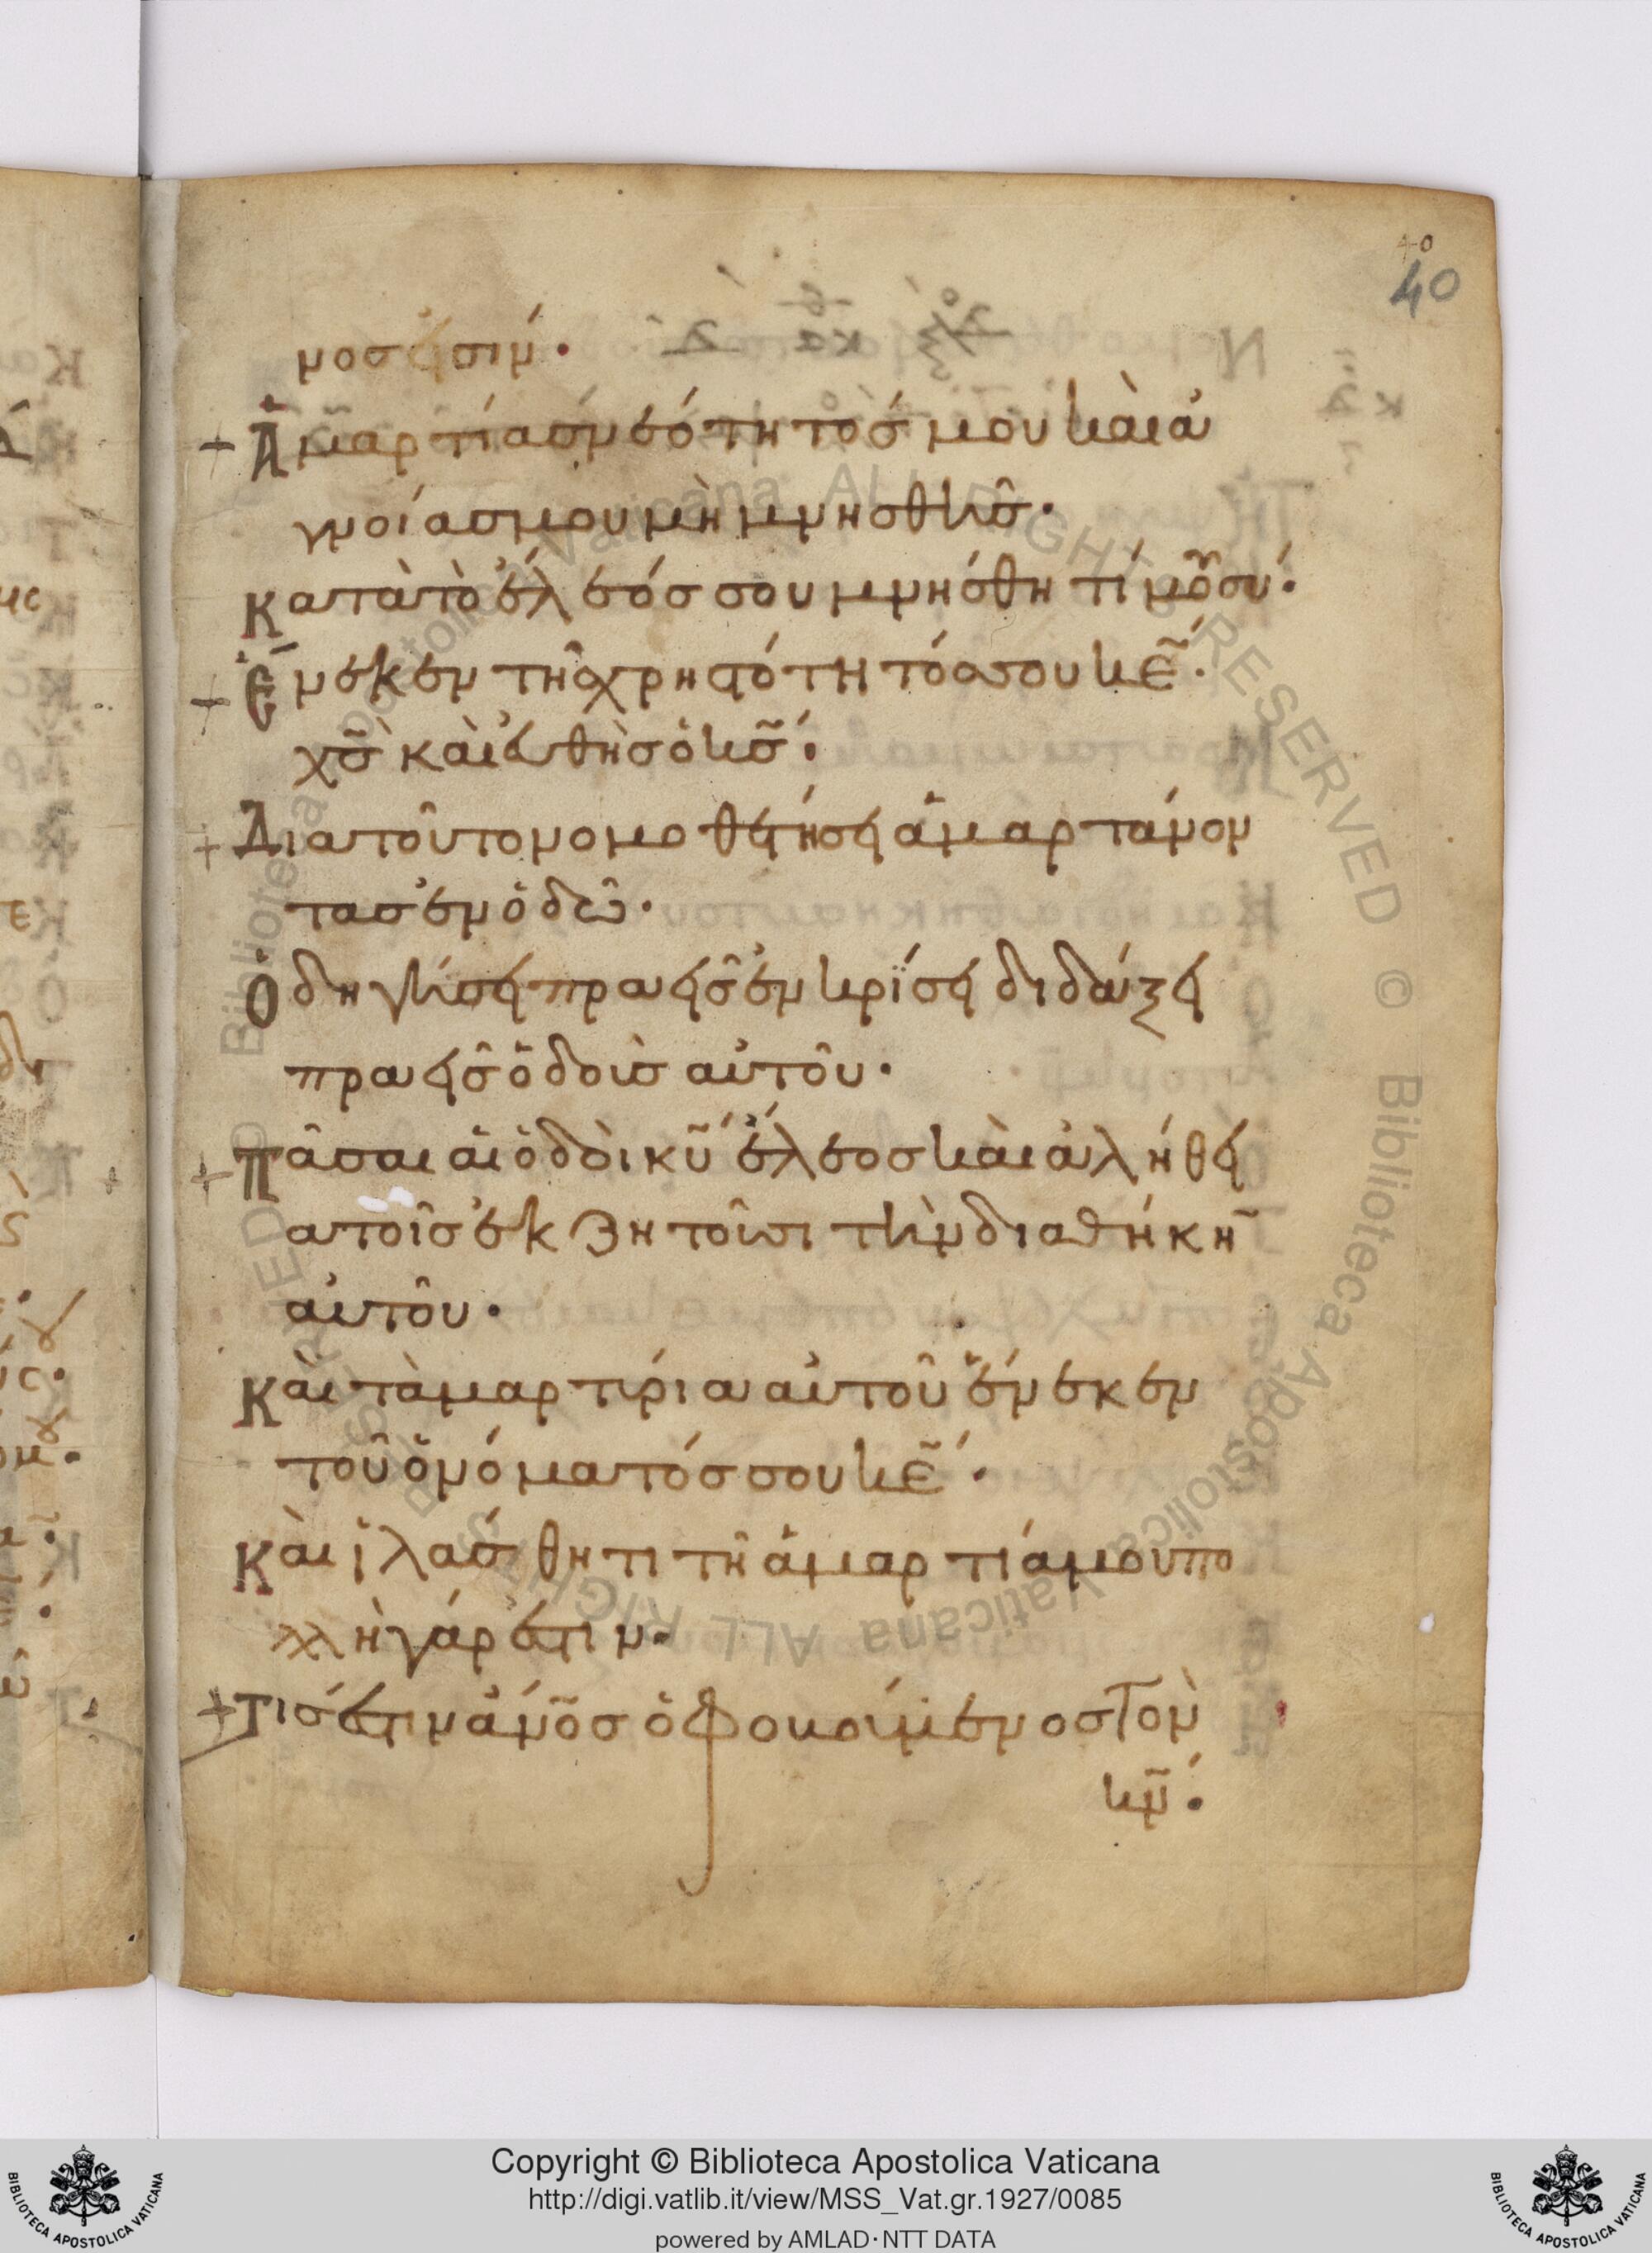 40
40
νοσ εἰσιν·
+ Ἁμαρτίασ νεότητόσ μου καὶ ἀ
γνοίασ μου μὴ μνησθῆσ·
Κατὰ τὸ ἔλεόσ σου μνήσθητί μου σύ·
+ Ἕνεκεν τῆσ χρηστότητόσ σου κε̃·
χσ̃ καὶ εὐθὴσ ὁ κσ̃·
+ Διατοῦτο νομοθετήσει ἁμαρτάνον
τασ ἐν ὁδῶ·
Ὁδηγήσει πραεῖσ ἐν κρίσει διδάξει
πραεῖσ ὁδοὺσ αὐτοῦ·
+ Πᾶσαι αἱ ὁδοὶ κυ̃ ἔλεοσ καὶ ἀλήθει
α τοῖσ ἐκζητοῦσι τὴν διαθήκη̄
αὐτοῦ·
Καὶ τὰ μαρτύρια αὐτοῦ ἕνεκεν
τοῦ ὀνόματόσ σου κε̃·
Καὶ ἱλάσθητι τῆ ἁμαρτία μου πο
λλὴ γάρ ἐστιν·
+ Τίσ ἐστιν ἀνο̃σ ὁ φοβούμενοσ τὸν
κν̃·
Copyright © Biblioteca Apostolica Vaticana
http://digi.vatlib.it/view/MSS_Vat.gr.1927/0085
powered by AMLAD·NTT DATA
BIBLIOTECA APOSTOLICA VATICANA
BIBLIOTECA APOSTOLICA VATICANA
Biblioteca Apostolica Vaticana ALL RIGHTS RESERVED © Biblioteca Apostolica Vaticana ALL RIGHTS RESERVED